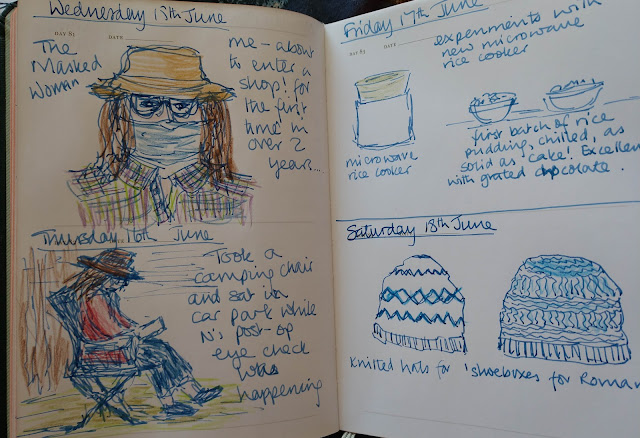 Wednesday 15th June
DAY 83 DATE
The
Masked
Woman
me - about
to enter a
shop! for
the first
time in
over 2
years...
Thursday 16th June
Took a
camping chair
and sat in a
car park while
N's post-op
eye check
was
happening
Friday 17th June
DAY 85 DATE
experiments with
new microwave
rice cooker
microwave
rice cooker
first batch of rice
pudding, chilled, as
solid as cake! Excellent
with grated chocolate.
Saturday 18th June
Knitted hats for 'shoeboxes for Roman